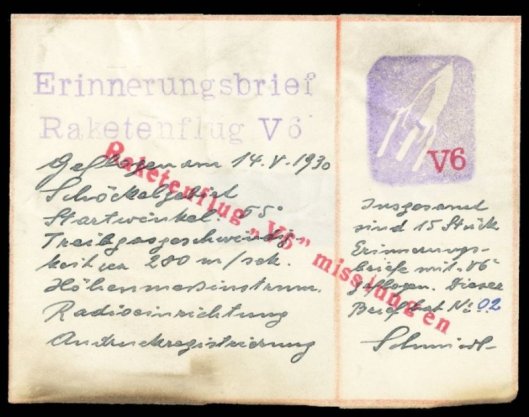 Erinnerungsbrief
Raketenflug V6
Raketenflug „V6" misslungen
Geflogen am 14.V.1930
Schöcklgebiet
Startwinkel 65°
Treibgasgeschwindig-
keit ca 280 m/sek.
Höhenmessinstrum.
Radioeinrichtung
Andruckregistrierung
V6
Insgesamt
sind 15 Stück
Erinnerungs-
briefe mit „V6"
geflogen. Dieser
Brief hat No: 02
Schmiedl